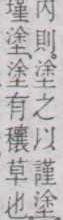 內則塗之以謹塗
墐塗塗有穰草也